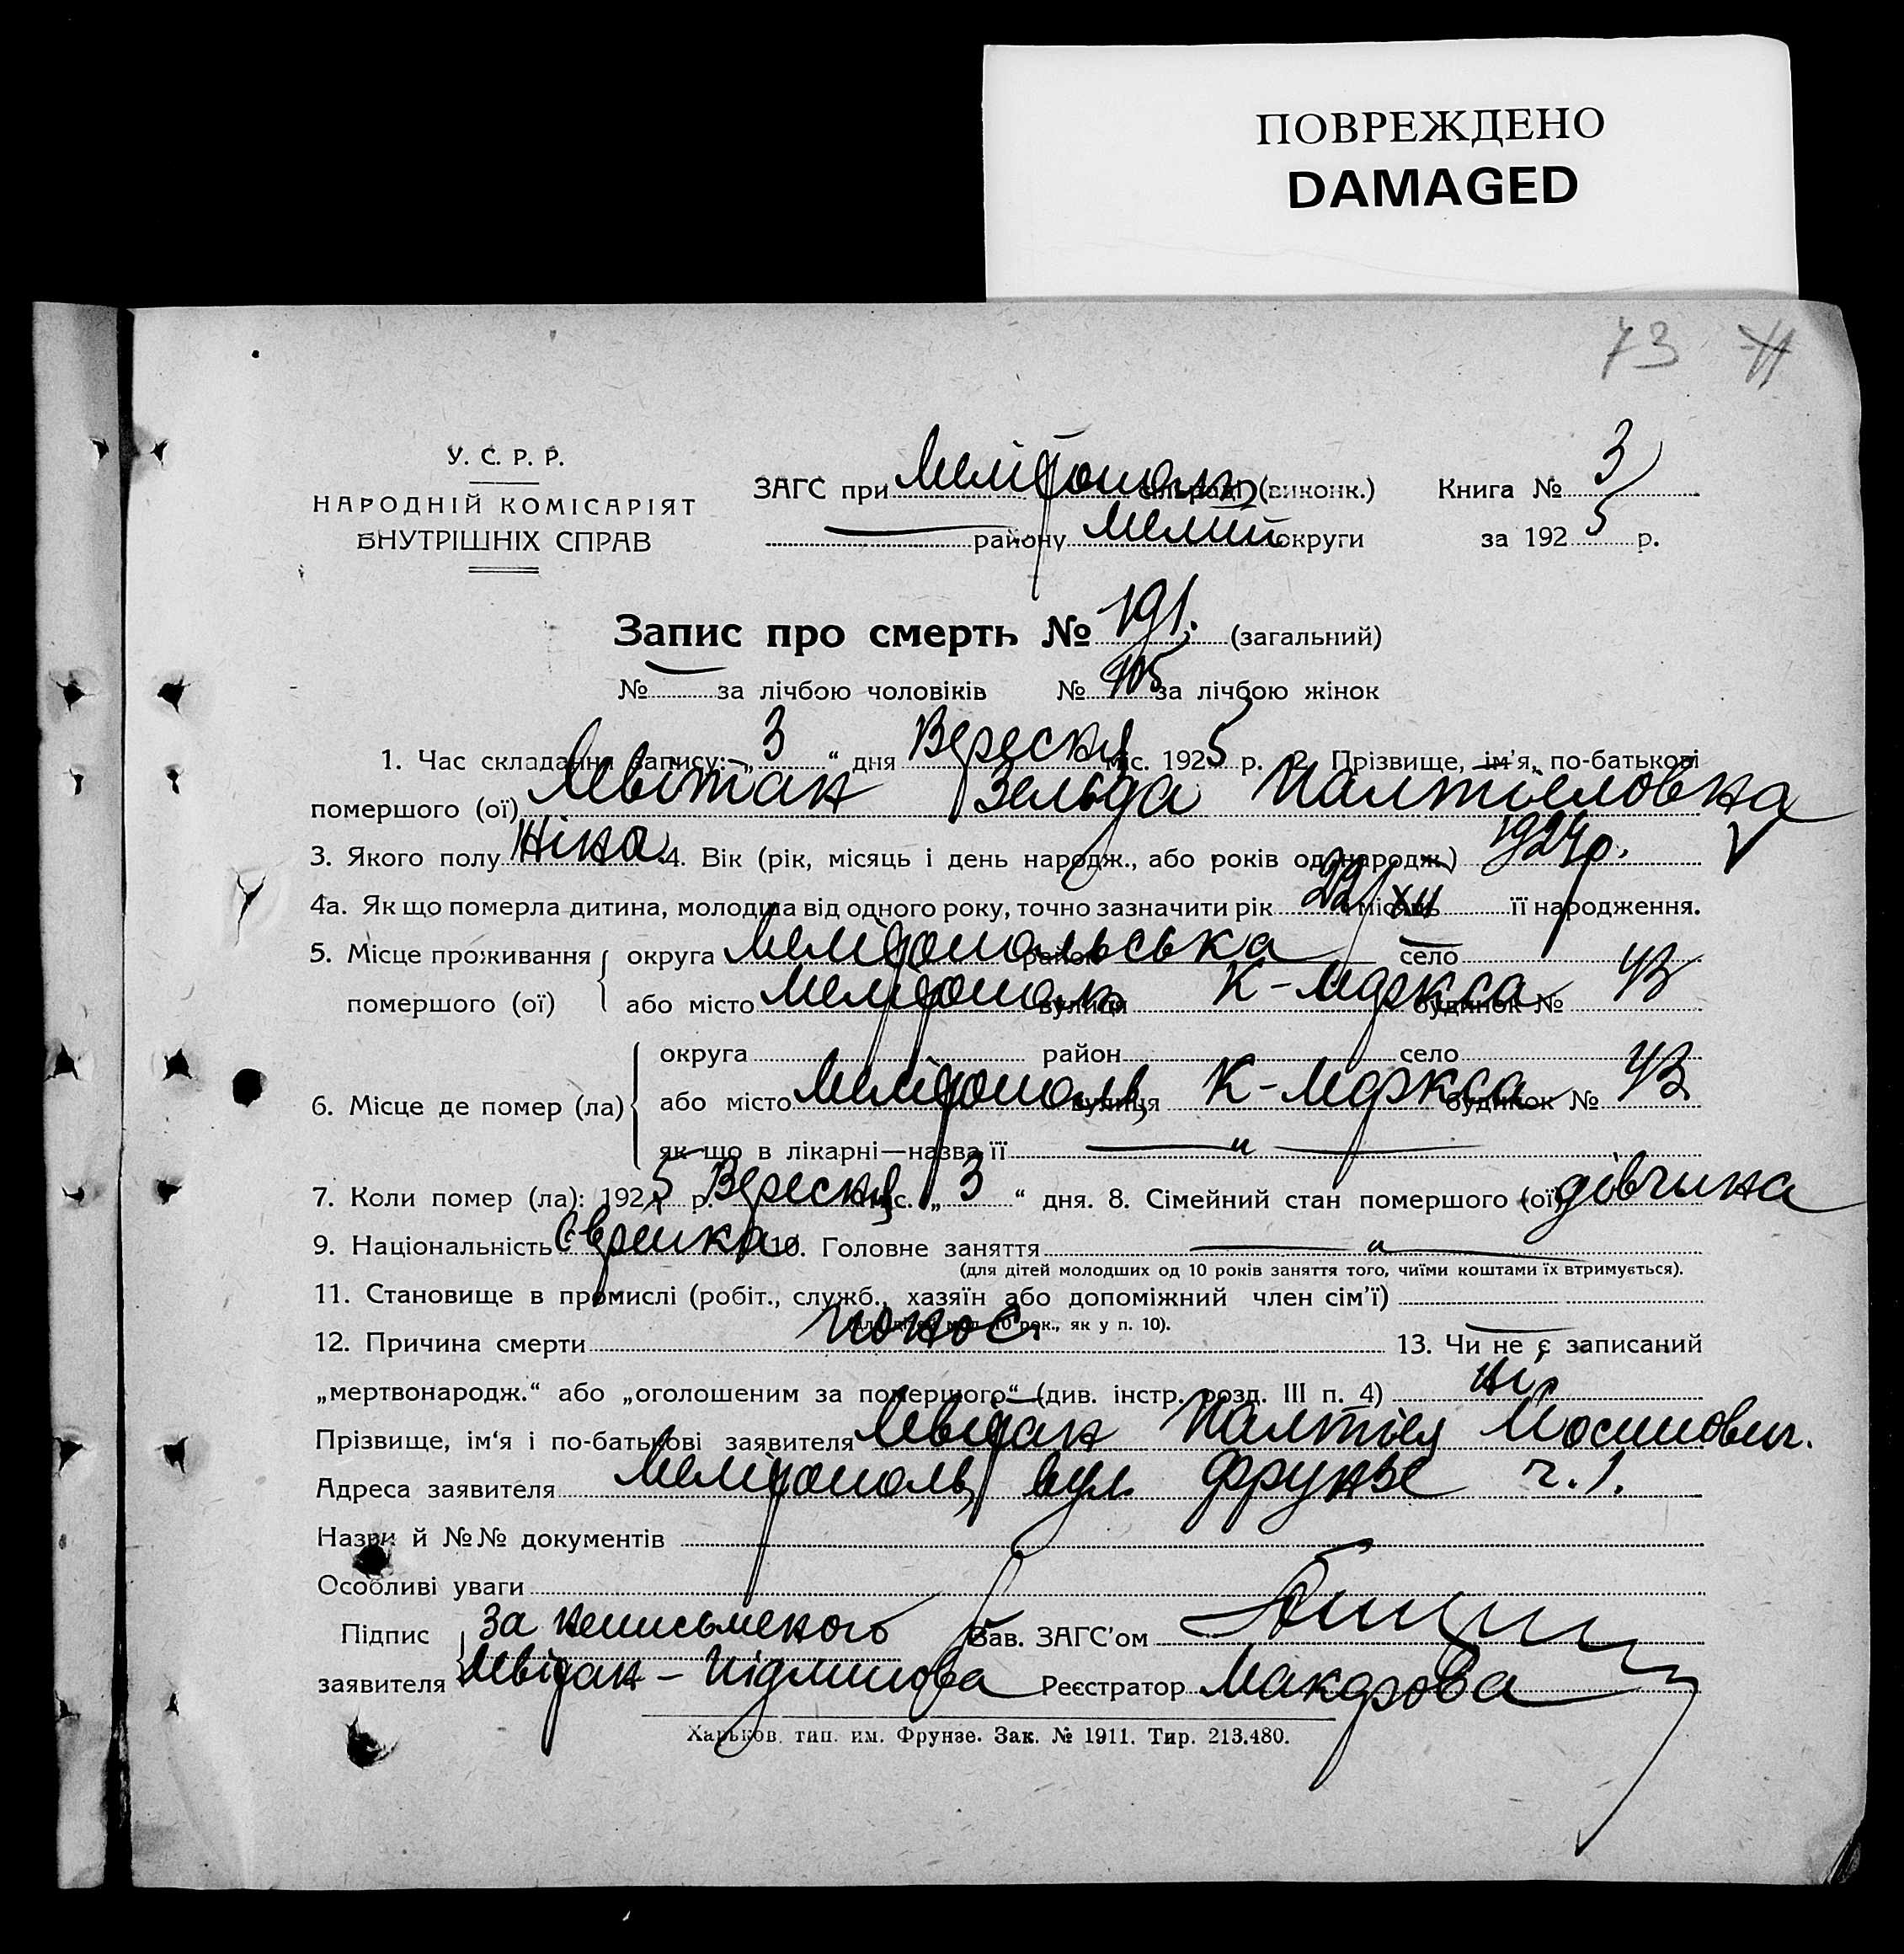 ПОВРЕЖДЕНО
DAMAGED
73
У. С. Р. Р.
НАРОДНІЙ КОМІСАРІЯТ
ВНУТРІШНІХ СПРАВ
ЗАГС при Меліт (виконк.) Книга № 3
району Меліт округи за 1925 р.
Запис про смерть № 191. (загальний)
№ за лічбою чоловіків № 105 за лічбою жінок
1. Час складання запису: „3“ дня Вересня міс. 1925 р. 2. Прізвище, ім'я, по-батькові
помершого (ої) Левітан Зельда Палтіеловна
3. Якого полу Жіно. 4. Вік (рік, місяць і день народж., або років од народж.) 1924 р.
4а. Як що померла дитина, молодша від одного року, точно зазначити рік 22/XII місяць її народження.
5. Місце проживання округа Мелітопольська район село
помершого (ої) або місто Мелітополь вулиця К-Маркса будинок № 43
округа район село
6. Місце де помер (ла) або місто Мелітополь вулиця К-Маркса будинок № 43
як що в лікарні—назва її — „ —
7. Коли помер (ла): 1925 р. Вересня міс. „3“ дня. 8. Сімейний стан помершого (ої) дівчина
9. Національність Єврейка 10. Головне заняття — „ —
(для дітей молодших од 10 років заняття того, чиїми коштами їх втримується).
11. Становище в промислі (робіт., служб., хазяїн або допоміжний член сім'ї)
рок., як у п. 10).
12. Причина смерти понос 13. Чи не є записаний
„мертвонародж.“ або „оголошеним за помершого“ (див. інстр. розд. III п. 4) ні
Прізвище, ім'я і по-батькові заявителя Левітан Палтіел Йосипович.
Адреса заявителя Мелітополь вул. Фрунзе ч. 1.
Назви й №№ документів
Особливі уваги
Підпис за неписьменого Зав. ЗАГС'ом
заявителя Левітан – Реєстратор Макарова
Харьков. тип. им. Фрунзе. Зак. № 1911. Тир. 213.480.